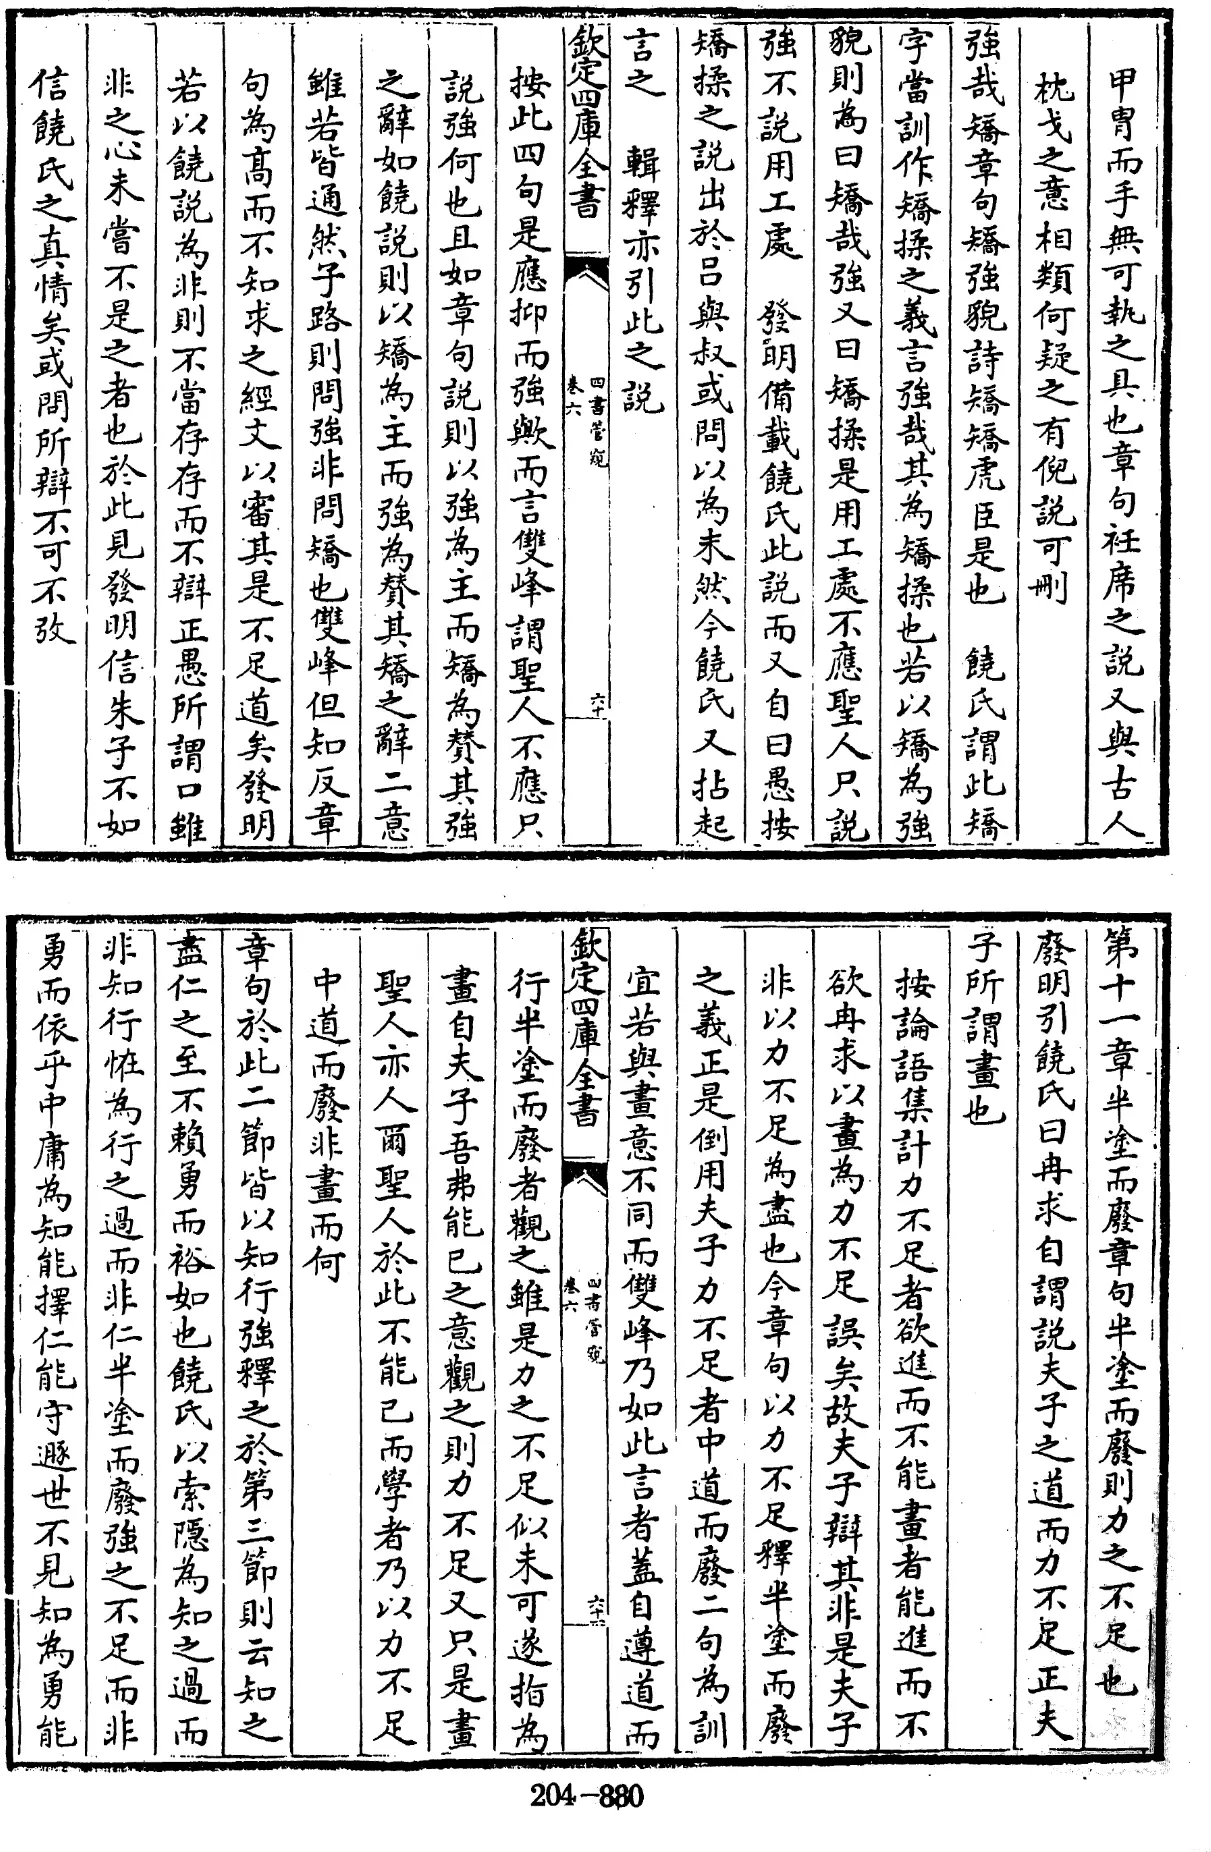 甲冑而手無可執之具也章句衽席之說又與古人
枕戈之意相類何疑之有倪說可刪
強哉矯章句矯強貌詩矯矯虎臣是也　饒氏謂此矯
字當訓作矯揉之義言強哉其為矯揉也若以矯為強
貌則為曰矯哉強又曰矯揉是用工處不應聖人只說
強不說用工處　發明備載饒氏此說而又自曰愚按
矯揉之說出於呂與叔或問以為未然今饒氏又拈起
言之　輯釋亦引此之說
欽定四庫全書
四書管窺
卷六
六十
按此四句是應抑而強歟而言雙峰謂聖人不應只
說強何也且如章句說則以強為主而矯為贊其強
之辭如饒說則以矯為主而強為贊其矯之辭二意
雖若皆通然子路則問強非問矯也雙峰但知反章
句為高而不知求之經文以審其是不足道矣發明
若以饒說為非則不當存存而不辯正愚所謂口雖
非之心未嘗不是之者也於此見發明信朱子不如
信饒氏之真情矣或問所辯不可不攷
第十一章半塗而廢章句半塗而廢則力之不足也
發明引饒氏曰冉求自謂說夫子之道而力不足正夫
子所謂畫也
按論語集註力不足者欲進而不能畫者能進而不
欲冉求以畫為力不足誤矣故夫子辯其非是夫子
非以力不足為盡也今章句以力不足釋半塗而廢
之義正是倒用夫子力不足者中道而廢二句為訓
宜若與畫意不同而雙峰乃如此言者蓋自遵道而
欽定四庫全書
四書管窺
卷六
六十一
行半塗而廢者觀之雖是力之不足似未可遂指為
畫自夫子吾弗能已之意觀之則力不足又只是畫
聖人亦人爾聖人於此不能已而學者乃以力不足
中道而廢非畫而何
章句於此二節皆以知行強釋之於第三節則云知之
盡仁之至不賴勇而裕如也饒氏以索隱為知之過而
非知行怪為行之過而非仁半塗而廢強之不足而非
勇而依乎中庸為知能擇仁能守遯世不見知為勇能
204-880